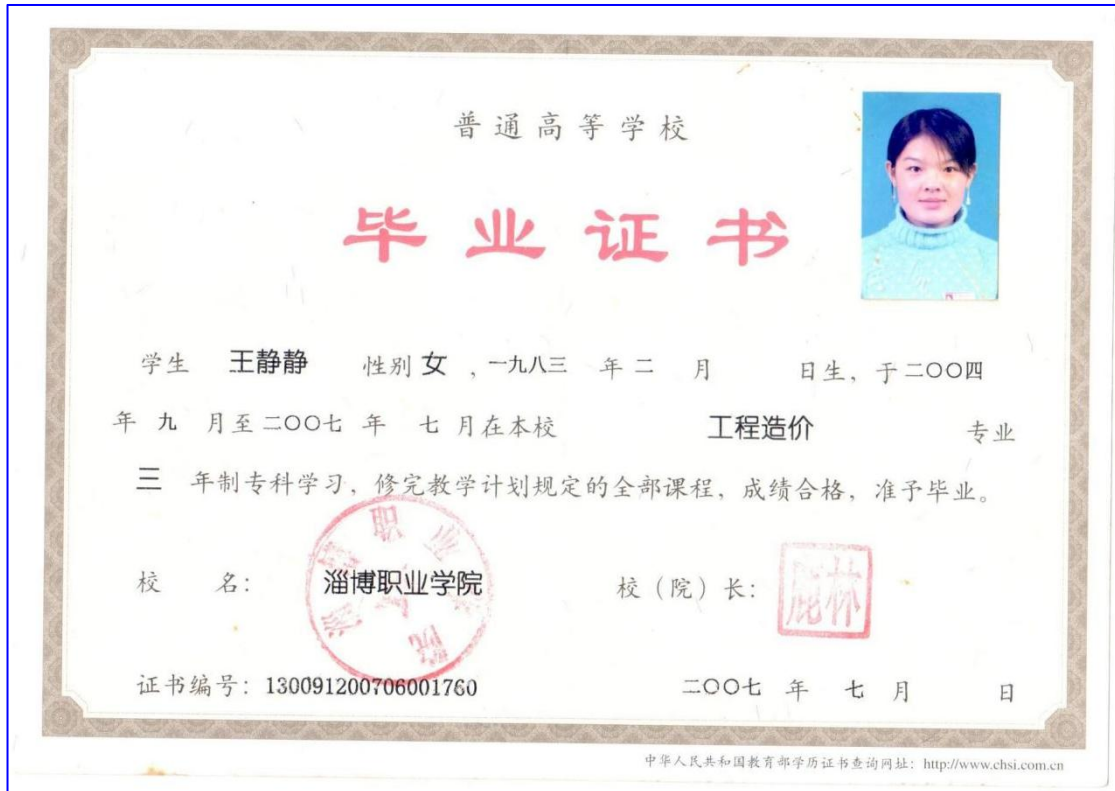 普通高等学校
毕业证书
学生 王静静 性别 女 ，一九八三 年 二 月 日生，于二〇〇四
年 九 月至二〇〇七 年 七 月在本校 工程造价 专业
三 年制专科学习，修完教学计划规定的全部课程，成绩合格，准予毕业。
校 名： 淄博职业学院 校（院）长：
淄博职业学院
林鹿
证书编号：130091200706001760 二〇〇七 年 七 月 日
中华人民共和国教育部学历证书查询网址：http://www.chsi.com.cn